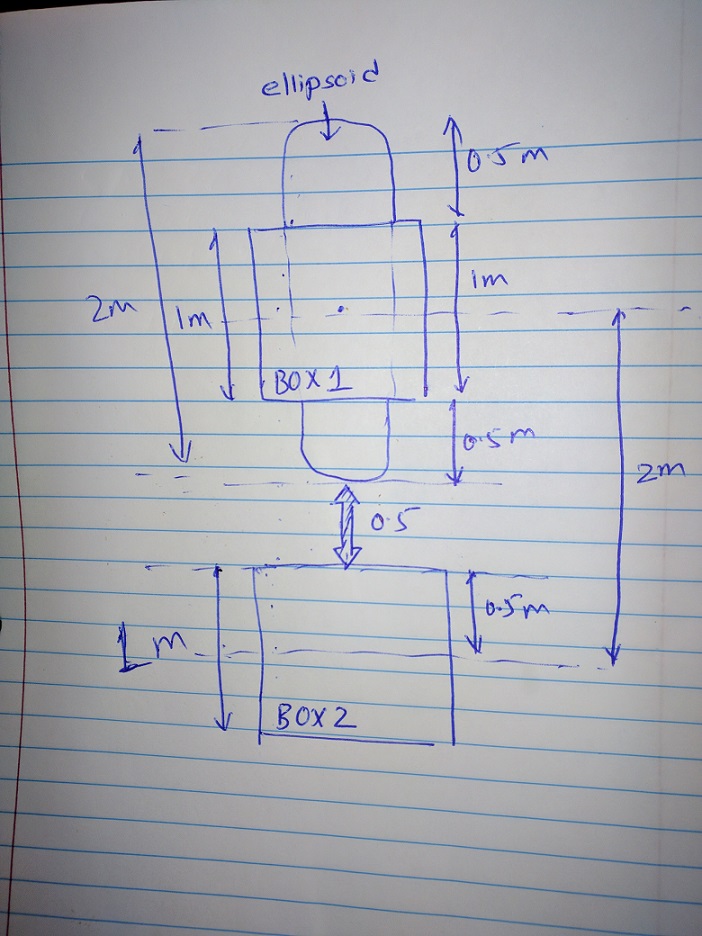 ellipsoid
0.5m
1m
2m
1m
BOX 1
0.5m
2m
0.5
0.5m
1 m
BOX 2